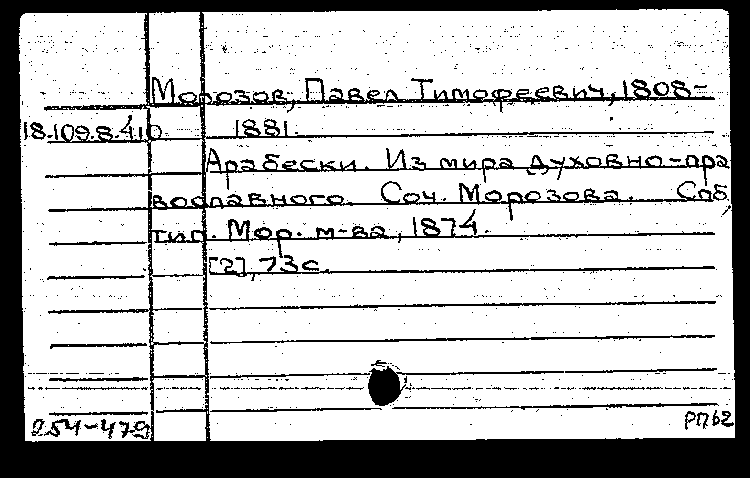 Морозов, Павел Тимофеевич, 1808-
18.109.8.410. 1881.
Арабески. Из мира духовно-пра
вославного. Соч. Морозова. Спб,
тип. Мор. м-ва, 1874.
[2], 73 с.
254-479
РП62